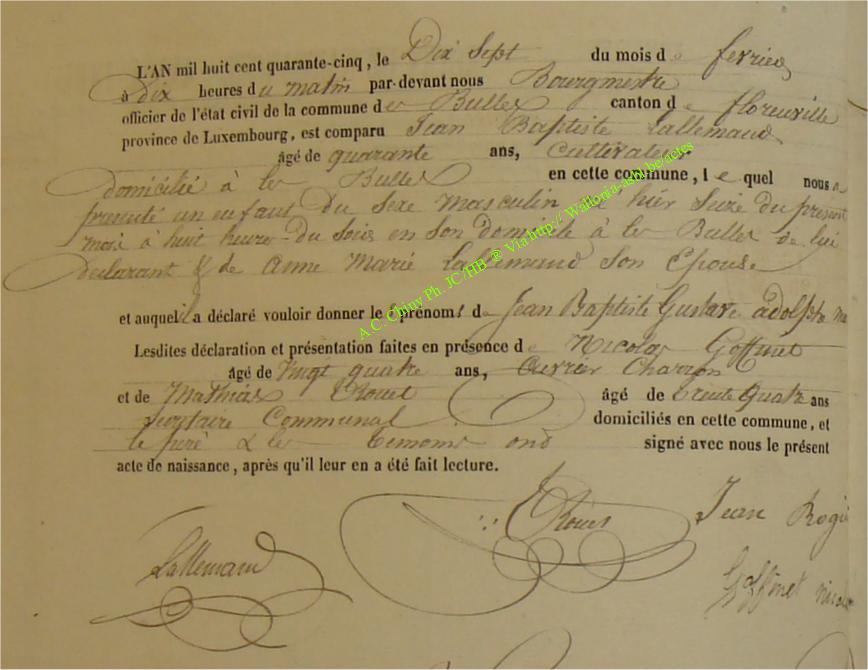 L'AN mil huit cent quarante-cinq, le Dix Sept du mois de fevrier
à Dix heures du matin par-devant nous Bourgmestre
officier de l'état civil de la commune de Les Bulles canton de florenville
province de Luxembourg, est comparu Jean Baptiste Lallemand
âgé de quarante ans, Cultivateur
domicilié à les Bulles en cette commune, lequel nous a
presenté un enfant du sexe masculin né hier Seize du present
mois à huit heures du Soir en son domicile à les Bulles de lui
declarant & de Anne Marie Lallemand Son Epouse
et auquel il a déclaré vouloir donner les prénoms de Jean Baptiste Gustave adolphe
Lesdites déclaration et présentation faites en présence de Nicolas Goffinet
âgé de Vingt quatre ans, Ouvrier Charron
et de Mathias âgé de trente Quatre ans
Secretaire Communal domiciliés en cette commune, et
le peré & les temoins ond signé avec nous le présent
acte de naissance, après qu'il leur en a été fait lecture.
Jean
Lallemand
Goffinet
A.C. Chiny Ph. JC/HB @ Via http:// Wallonia-asbl.be/actes